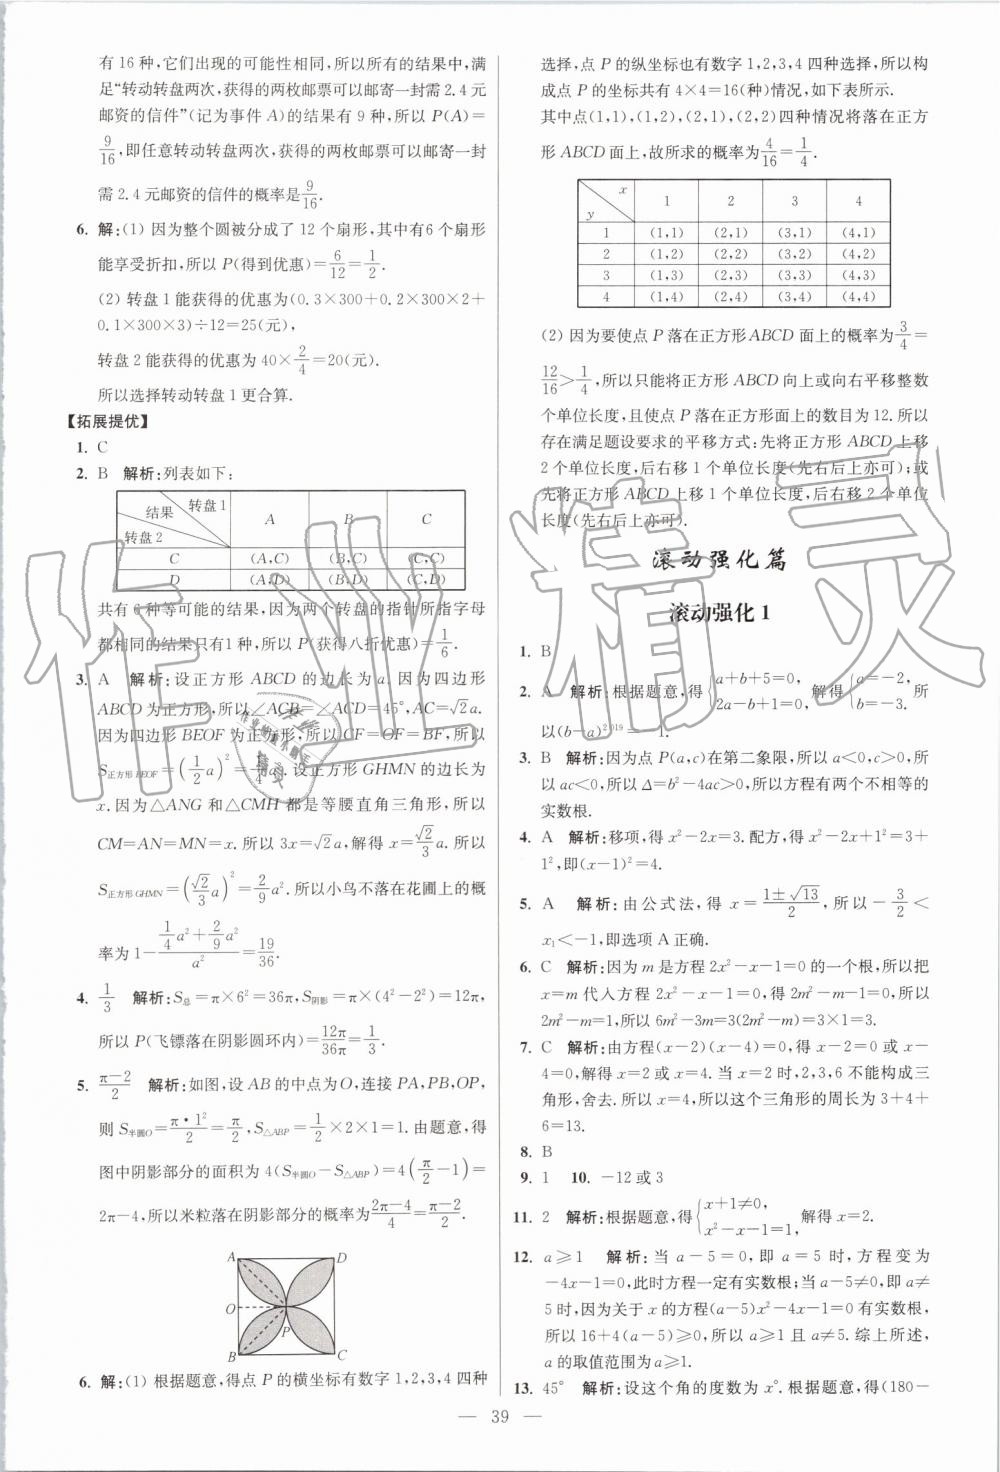 有16种,它们出现的可能性相同,所以所有的结果中,满
足“转动转盘两次,获得的两枚邮票可以邮寄一封需2.4元
邮资的信件”(记为事件A)的结果有9种,所以P(A)=
9/16,即任意转动转盘两次,获得的两枚邮票可以邮寄一封
需2.4元邮资的信件的概率是9/16.
6. 解:(1) 因为整个圆被分成了12个扇形,其中有6个扇形
能享受折扣,所以P(得到优惠)=6/12=1/2.
(2) 转盘1能获得的优惠为(0.3×300+0.2×300×2+
0.1×300×3)÷12=25(元),
转盘2能获得的优惠为40×2/4=20(元).
所以选择转动转盘1更合算.
【拓展提优】
1. C
2. B 解析:列表如下:
结果 转盘1 转盘2 A B C
C (A,C) (B,C) (C,C)
D (A,D) (B,D) (C,D)
共有6种等可能的结果,因为两个转盘的指针所指字母
都相同的结果只有1种,所以P(获得八折优惠)=1/6.
3. A 解析:设正方形ABCD的边长为a.因为四边形
ABCD为正方形,所以∠ACB=∠ACD=45°,AC=√2a.
因为四边形BEOF为正方形,所以CF=OF=BF,所以
S正方形BEOF=(1/2a)²=1/4a².设正方形GHMN的边长为
x.因为△ANG和△CMH都是等腰直角三角形,所以
CM=AN=MN=x.所以3x=√2a,解得x=√2/3a.所以
S正方形GHMN=(√2/3a)²=2/9a².所以小鸟不落在花圃上的概
率为1-(1/4a²+2/9a²)/a²=19/36.
4. 1/3 解析:S总=π×6²=36π,S阴影=π×(4²-2²)=12π,
所以P(飞镖落在阴影圆环内)=12π/36π=1/3.
5. (π-2)/2 解析:如图,设AB的中点为O,连接PA,PB,OP,
则S半圆O=π•1²/2=π/2,S△ABP=1/2×2×1=1.由题意,得
图中阴影部分的面积为4(S半圆O-S△ABP)=4(π/2-1)=
2π-4,所以米粒落在阴影部分的概率为(2π-4)/4=(π-2)/2.
A D
O P
B C
6. 解:(1) 根据题意,得点P的横坐标有数字1,2,3,4四种
选择,点P的纵坐标也有数字1,2,3,4四种选择,所以构
成点P的坐标共有4×4=16(种)情况,如下表所示.
其中点(1,1),(1,2),(2,1),(2,2)四种情况将落在正方
形ABCD面上,故所求的概率为4/16=1/4.
x y 1 2 3 4
1 (1,1) (2,1) (3,1) (4,1)
2 (1,2) (2,2) (3,2) (4,2)
3 (1,3) (2,3) (3,3) (4,3)
4 (1,4) (2,4) (3,4) (4,4)
(2) 因为要使点P落在正方形ABCD面上的概率为3/4=
12/16>1/4,所以只能将正方形ABCD向上或向右平移整数
个单位长度,且使点P落在正方形面上的数目为12.所以
存在满足题设要求的平移方式:先将正方形ABCD上移
2个单位长度,后右移1个单位长度(先右后上亦可);或
先将正方形ABCD上移1个单位长度,后右移2个单位
长度(先右后上亦可).
滚动强化篇
滚动强化1
1. B
2. A 解析:根据题意,得{a+b+5=0, 2a-b+1=0, 解得{a=-2, b=-3. 所
以(b-a)²⁰¹⁹=-1.
3. B 解析:因为点P(a,c)在第二象限,所以a<0,c>0,所
以ac<0,所以Δ=b²-4ac>0,所以方程有两个不相等的
实数根.
4. A 解析:移项,得x²-2x=3.配方,得x²-2x+1²=3+
1²,即(x-1)²=4.
5. A 解析:由公式法,得x=(1±√13)/2,所以-3/2<
x₁<-1,即选项A正确.
6. C 解析:因为m是方程2x²-x-1=0的一个根,所以把
x=m代入方程2x²-x-1=0,得2m²-m-1=0,所以
2m²-m=1,所以6m²-3m=3(2m²-m)=3×1=3.
7. C 解析:由方程(x-2)(x-4)=0,得x-2=0或x-
4=0,解得x=2或x=4.当x=2时,2,3,6不能构成三
角形,舍去.所以x=4,所以这个三角形的周长为3+4+
6=13.
8. B
9. 1 10. -12或3
11. 2 解析:根据题意,得{x+1≠0, x²-x-1=1, 解得x=2.
12. a≥1 解析:当a-5=0,即a=5时,方程变为
-4x-1=0,此时方程一定有实数根;当a-5≠0,即a≠
5时,因为关于x的方程(a-5)x²-4x-1=0有实数根,
所以16+4(a-5)≥0,所以a≥1且a≠5.综上所述,
a的取值范围为a≥1.
13. 45° 解析:设这个角的度数为x°.根据题意,得(180-
— 39 —
作业精灵